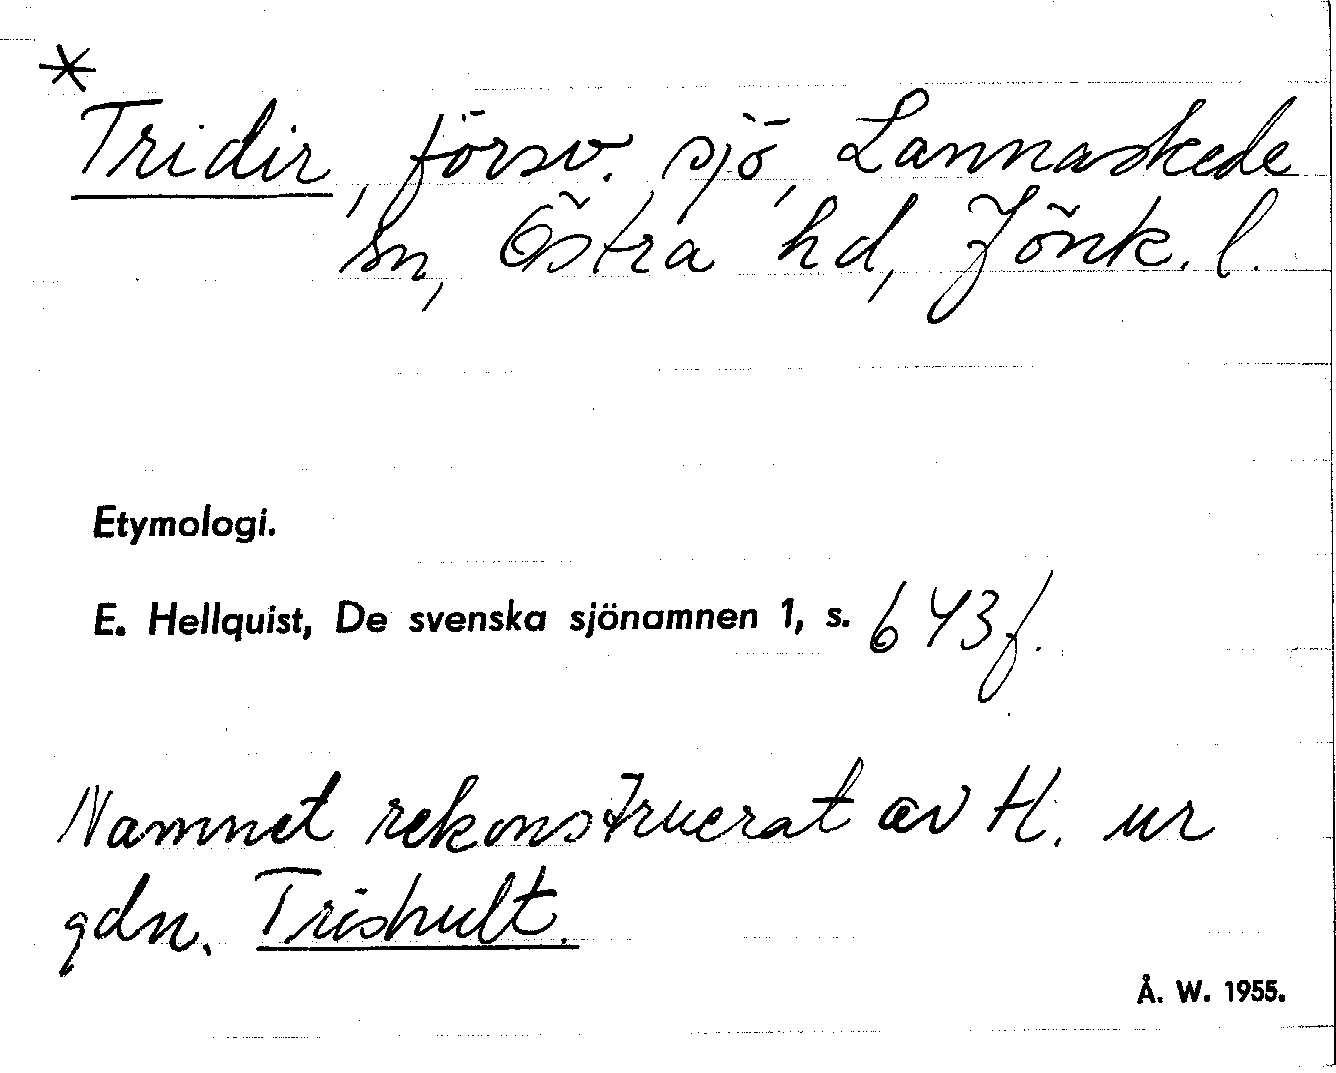 *
Tridir, försv. sjö, Lannaskede
sn, Östra hd, Jönk. l.
Etymologi.
E. Hellquist, De svenska sjönamnen 1, s. 643 f.
Namnet rekonstruerat av H. ur
gdn. Trishult.
Å. W. 1955.